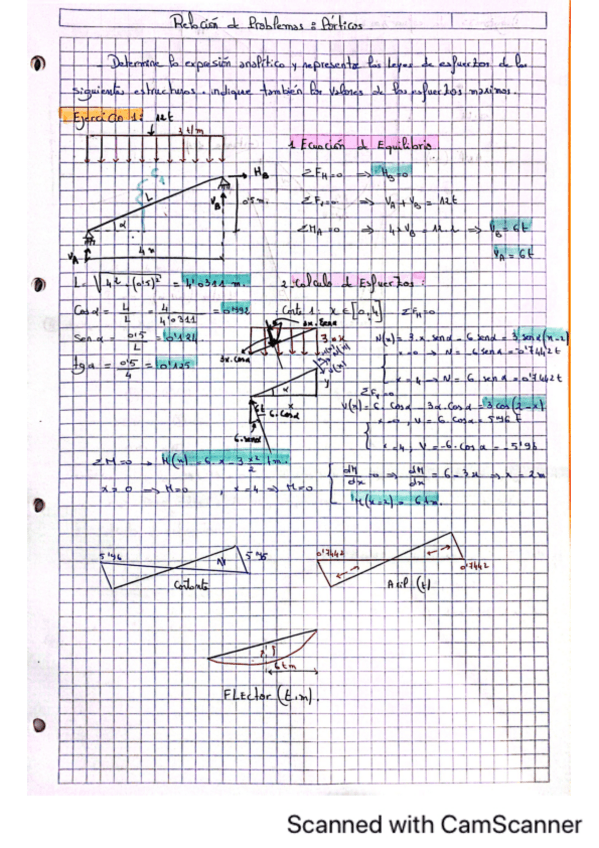 Relación de Problemas: Pórticos.
- Determine la expresión analítica y represente las leyes de esfuerzos de las
siguientes estructuras. indique también los valores de los esfuerzos máximos.
Ejercicio 1: 12t
3 t/m
H_B
V_B
0'5 m.
L
α
V_A
4 m
1. Ecuación de Equilibrio.
ΣF_H=0 ⇒ H_B=0
⇒ V_A + V_B = 12t
ΣM_A=0 ⇒ 4·V_B = 12·2 ⇒ V_B = 6t
V_A = 6t
L = √(4² + (0'5)²) = 4'0311 m.
Cos α = 4/L = 4/4'0311 = 0'992
Sen α = 0'5/L = 0'124
tg α = 0'5/4 = 0'125
2. Calculo de Esfuerzos:
Corte 1: x ∈ [0,4] ΣF_H=0
3x·senα
3·x
3x·cosα
α
x
y
6t
6·cosα
6·senα
N(x) = 3·x·senα - 6·senα = 3 senα (x-2)
x=0 → N = -6 senα = -0'7442t
x=4 → N = 6·senα = 0'7442t
V(x) = 6·Cosα - 3x·Cosα = 3 cos(2-x)
x=0, V = 6·cosα = 5'96 t
x=4, V = -6·cosα = -5'96
ΣM=0 → M(x) = 6·x - 3 x²/2 tm.
x=0 → M=0, x=4 → M=0
dM/dx = 0 ⇒ dM/dx = 6-3x ⇒ x = 2m
M(x=2) = 6 tm.
5'96
5'96
Cortante
0'7442
0'7442
Axil (t)
6 tm
FLEctor (t·m).
Scanned with CamScanner